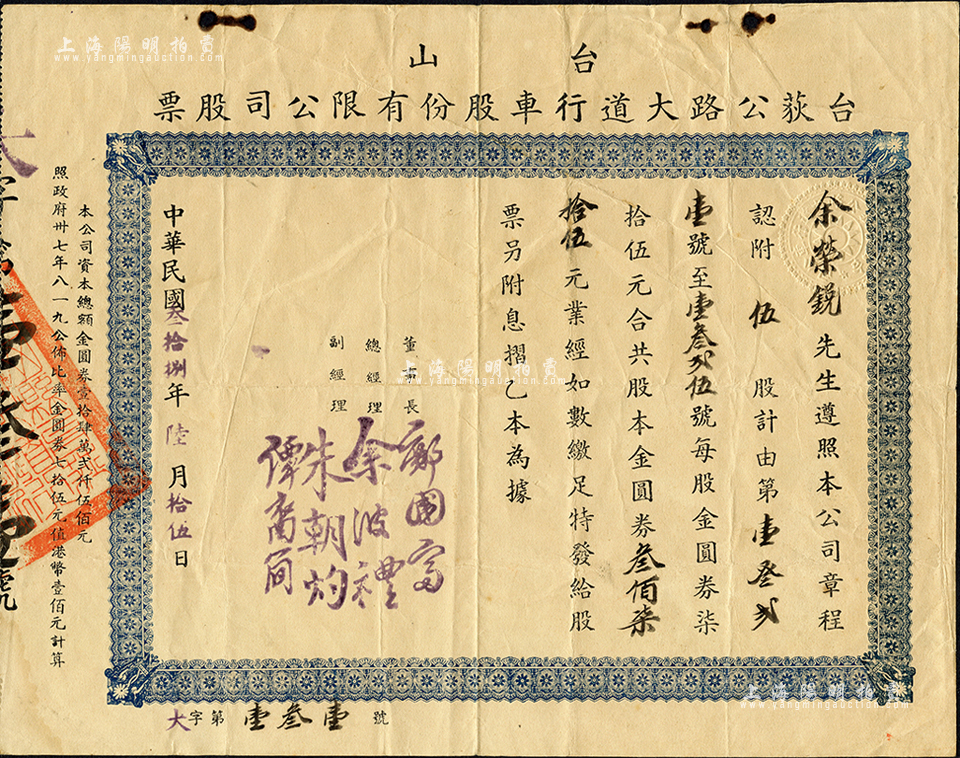 上海陽明拍賣
www.yangmingauction.com
台山
台荻公路大道行車股份有限公司股票
余榮銳先生遵照本公司章程
認附伍股計由第壹叁弍
壹號至壹叁弍伍號每股金圓券柒
拾伍元合共股本金圓券叁佰柒
拾伍元業經如數繳足特發給股
票另附息摺乙本為據
董事長 鄺國富
總經理 余波禮
副經理 朱朝灼
譚裔簡
中華民國叁拾捌年陸月拾伍日
本公司資本總額金圓券壹拾肆萬弍仟伍佰元
照政府卅七年八一九公佈比率金圓券七拾伍元值港幣壹佰元計算
大字第壹叁壹號
上海陽明拍賣
www.yangmingauction.com
上海陽明拍賣
www.yangmingauction.com